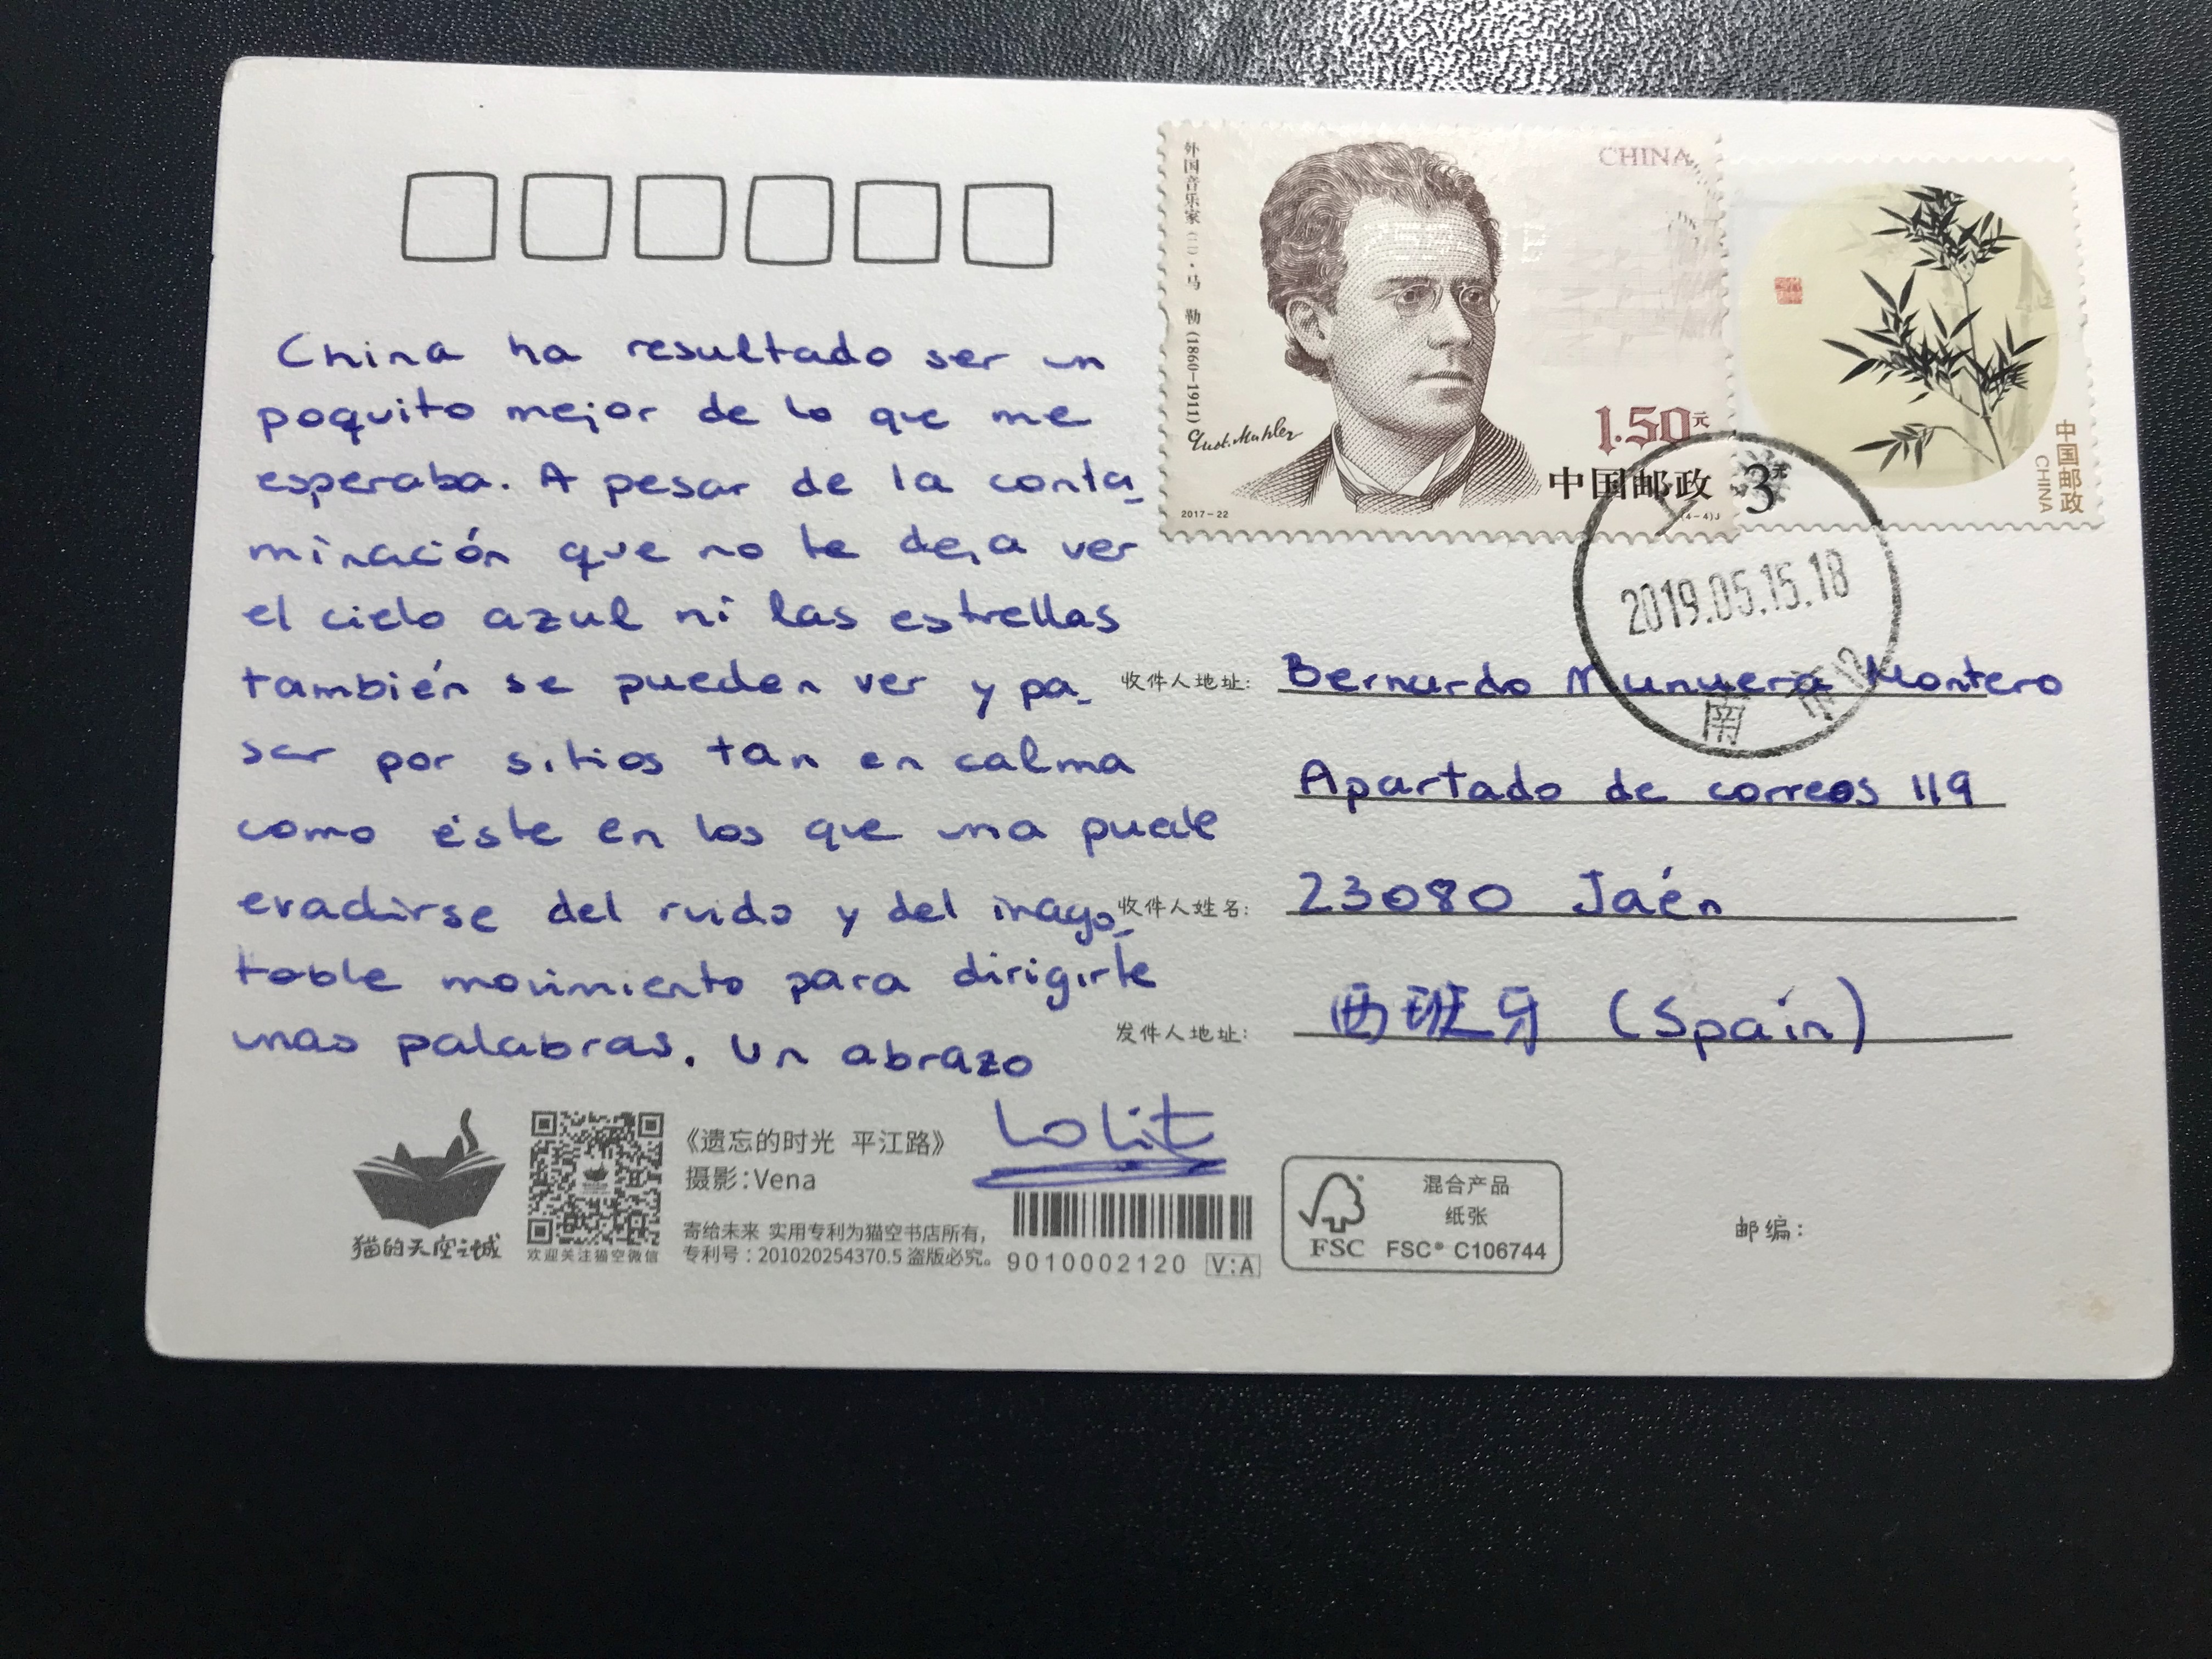 China ha resultado ser un
poquito mejor de lo que me
esperaba. A pesar de la conta_
minación que no te deja ver
el cielo azul ni las estrellas
también se pueden ver y pa_
sar por sitios tan en calma
como éste en los que una puede
evadirse del ruido y del inago_
table movimiento para dirigirte
unas palabras. Un abrazo
Lolit
外国音乐家(二)·马 勒(1860-1911)
CHINA
Gust. Mahler
1.50元
中国邮政
2017-22
(4-4)J
3元
中国邮政
CHINA
2019.05.15.18
南
收件人地址: Bernardo Munuera Montero
Apartado de correos 119
收件人姓名: 23080 Jaén
发件人地址: 西班牙 (Spain)
猫的天空之城
欢迎关注猫空微信
《遗忘的时光 平江路》
摄影:Vena
寄给未来 实用专利为猫空书店所有,
专利号:201020254370.5 盗版必究。
9010002120 V:A
FSC
混合产品
纸张
FSC® C106744
邮编: